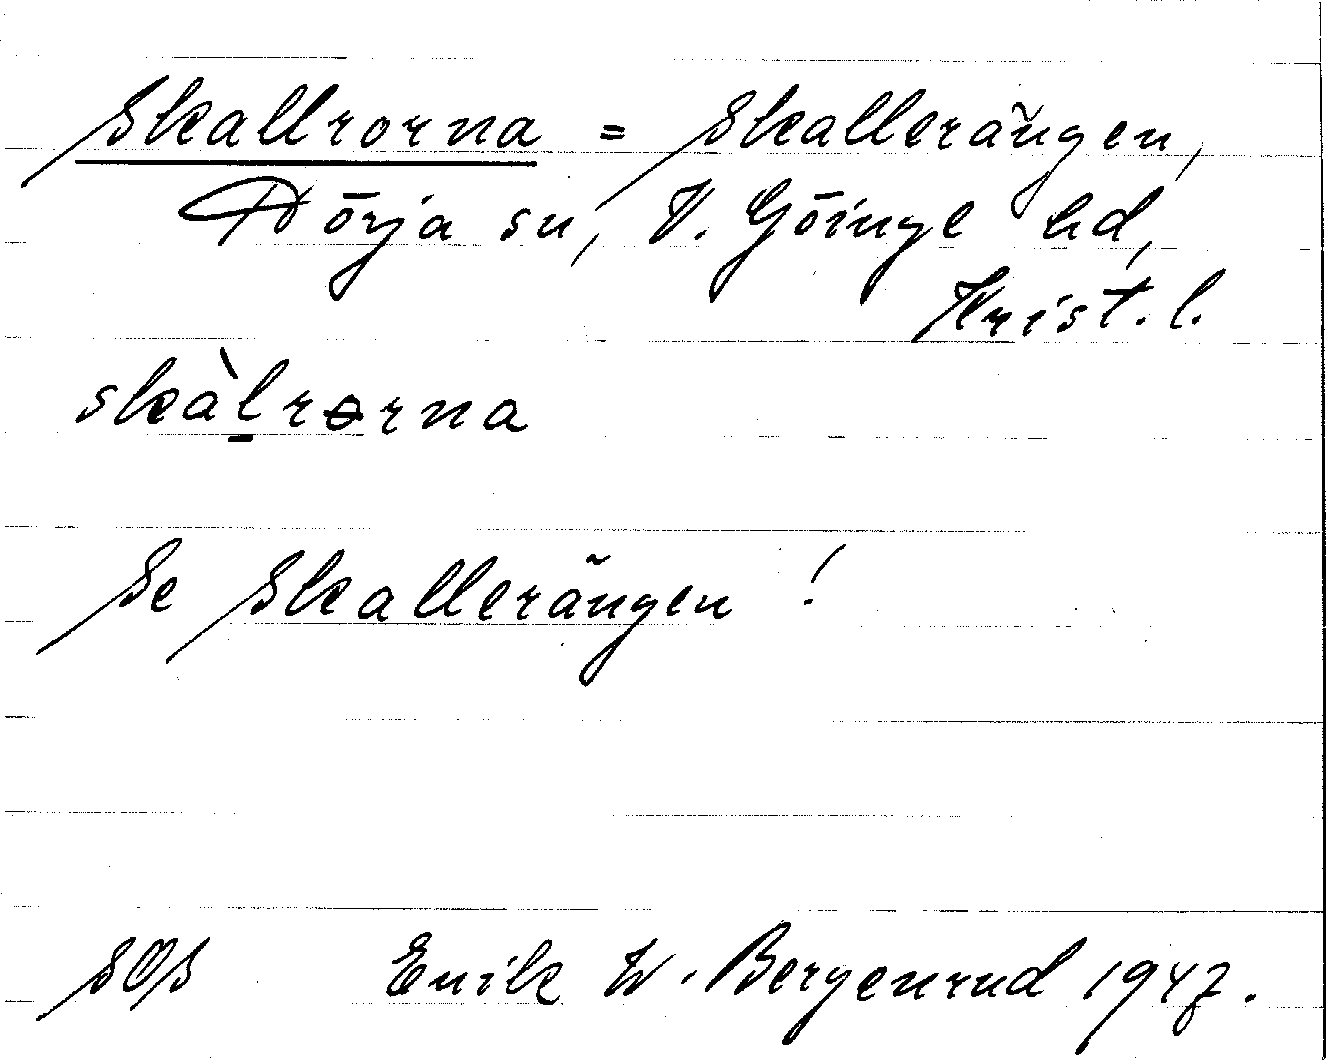 Skallrorna = Skallerängen,
Nörja sn, V. Göinge hd,
Krist. l.
skàl̠rɵrna
Se Skallerängen!
SOS Erik W. Bergenrud 1947.